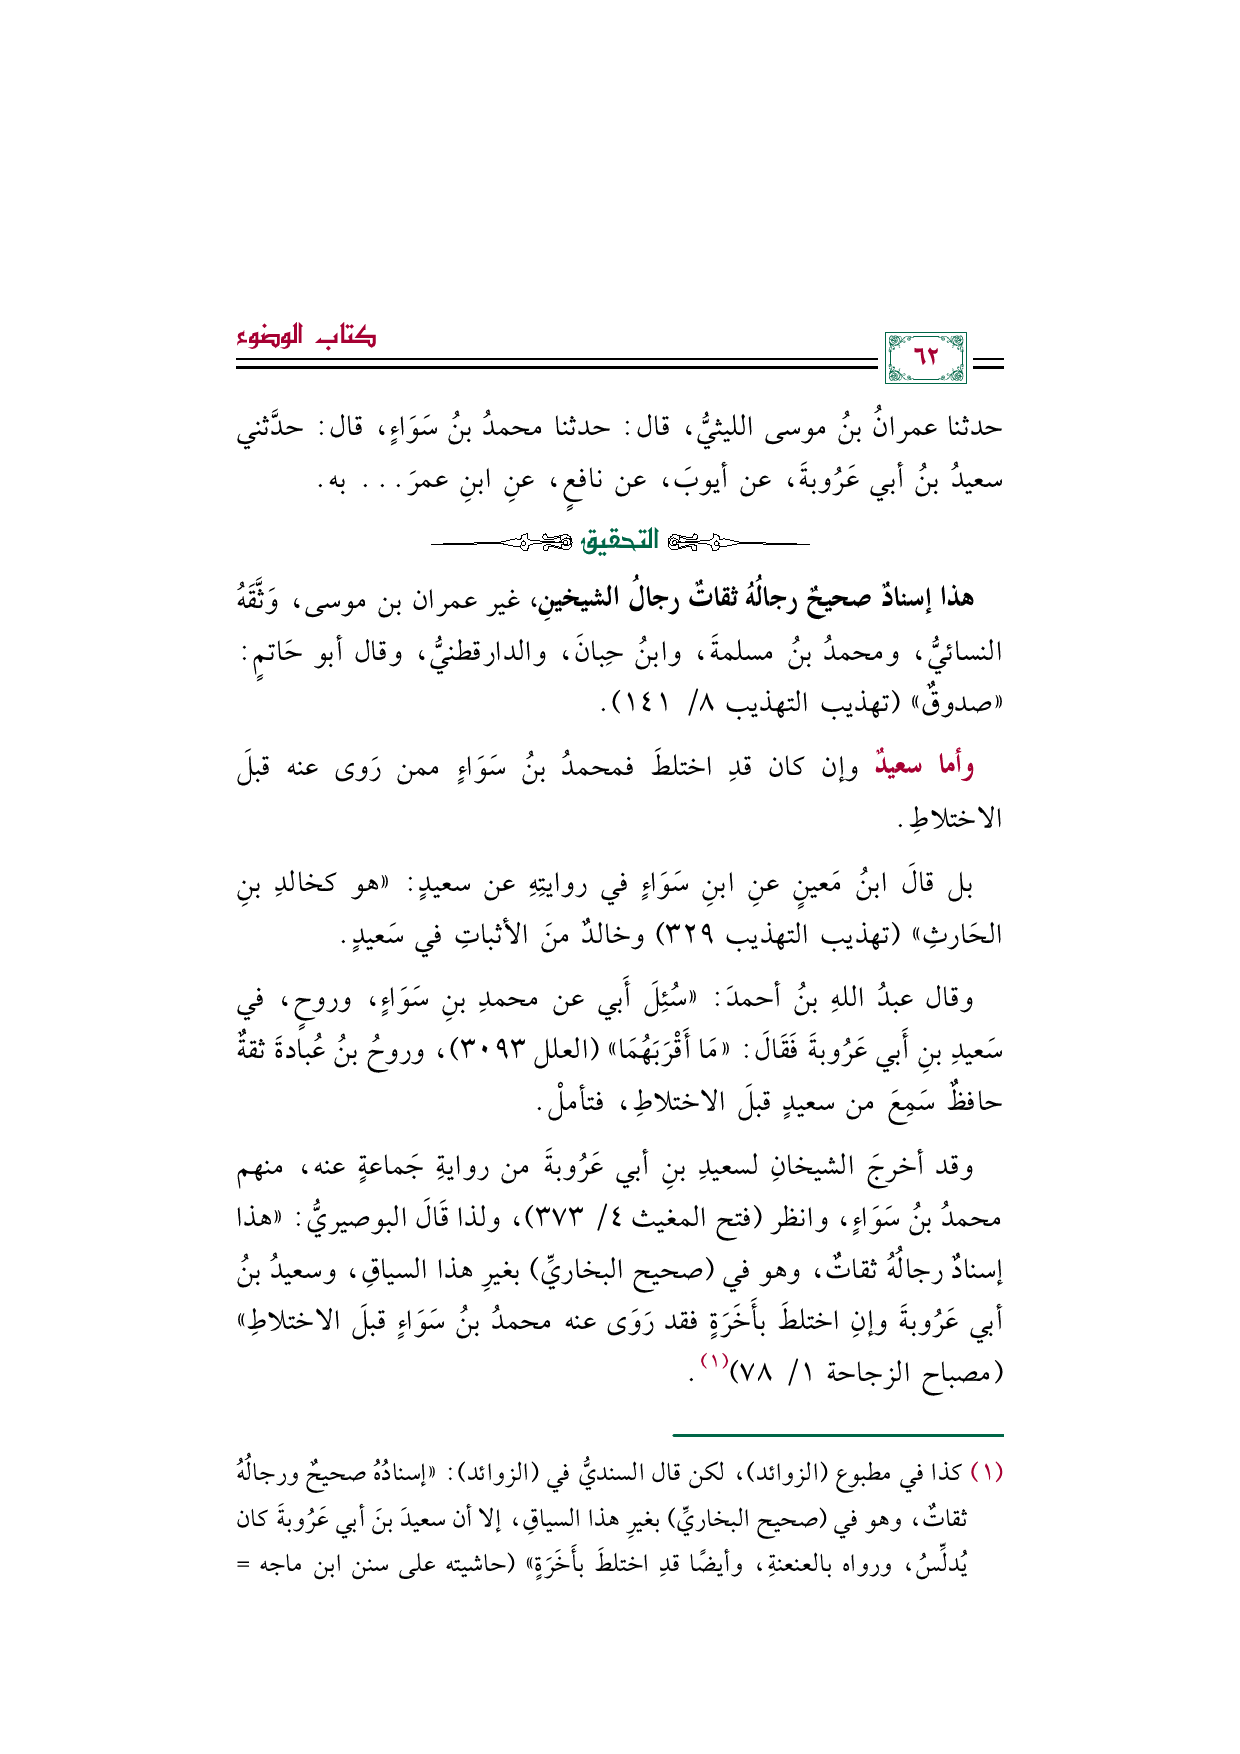 كتاب الوضوء
٦٢
حدثنا عمرانُ بنُ موسى الليثيُّ، قال: حدثنا محمدُ بنُ سَوَاءٍ، قال: حدَّثني
سعيدُ بنُ أبي عَرُوبةَ، عن أيوبَ، عن نافعٍ، عنِ ابنِ عمرَ... به.
التحقيق
هذا إسنادٌ صحيحٌ رجالُهُ ثقاتٌ رجالُ الشيخينِ، غير عمران بن موسى، وَثَّقَهُ
النسائيُّ، ومحمدُ بنُ مسلمةَ، وابنُ حِبانَ، والدارقطنيُّ، وقال أبو حَاتمٍ:
«صدوقٌ» (تهذيب التهذيب ٨/ ١٤١).
وأما سعيدٌ وإن كان قدِ اختلطَ فمحمدُ بنُ سَوَاءٍ ممن رَوى عنه قبلَ
الاختلاطِ.
بل قالَ ابنُ مَعينٍ عنِ ابنِ سَوَاءٍ في روايتِهِ عن سعيدٍ: «هو كخالدِ بنِ
الحَارثِ» (تهذيب التهذيب ٣٢٩) وخالدٌ منَ الأثباتِ في سَعيدٍ.
وقال عبدُ اللهِ بنُ أحمدَ: «سُئِلَ أَبي عن محمدِ بنِ سَوَاءٍ، وروحٍ، في
سَعيدِ بنِ أَبي عَرُوبةَ فَقَالَ: «مَا أَقْرَبَهُمَا» (العلل ٣٠٩٣)، وروحُ بنُ عُبادةَ ثقةٌ
حافظٌ سَمِعَ من سعيدٍ قبلَ الاختلاطِ، فتأملْ.
وقد أخرجَ الشيخانِ لسعيدِ بنِ أبي عَرُوبةَ من روايةِ جَماعةٍ عنه، منهم
محمدُ بنُ سَوَاءٍ، وانظر (فتح المغيث ٤/ ٣٧٣)، ولذا قَالَ البوصيريُّ: «هذا
إسنادٌ رجالُهُ ثقاتٌ، وهو في (صحيح البخاريِّ) بغيرِ هذا السياقِ، وسعيدُ بنُ
أبي عَرُوبةَ وإنِ اختلطَ بأَخَرَةٍ فقد رَوَى عنه محمدُ بنُ سَوَاءٍ قبلَ الاختلاطِ»
(مصباح الزجاحة ١/ ٧٨)(١).
(١) كذا في مطبوع (الزوائد)، لكن قال السنديُّ في (الزوائد): «إسنادُهُ صحيحٌ ورجالُهُ
ثقاتٌ، وهو في (صحيح البخاريِّ) بغيرِ هذا السياقِ، إلا أن سعيدَ بنَ أبي عَرُوبةَ كان
يُدلِّسُ، ورواه بالعنعنةِ، وأيضًا قدِ اختلطَ بأَخَرَةٍ» (حاشيته على سنن ابن ماجه =